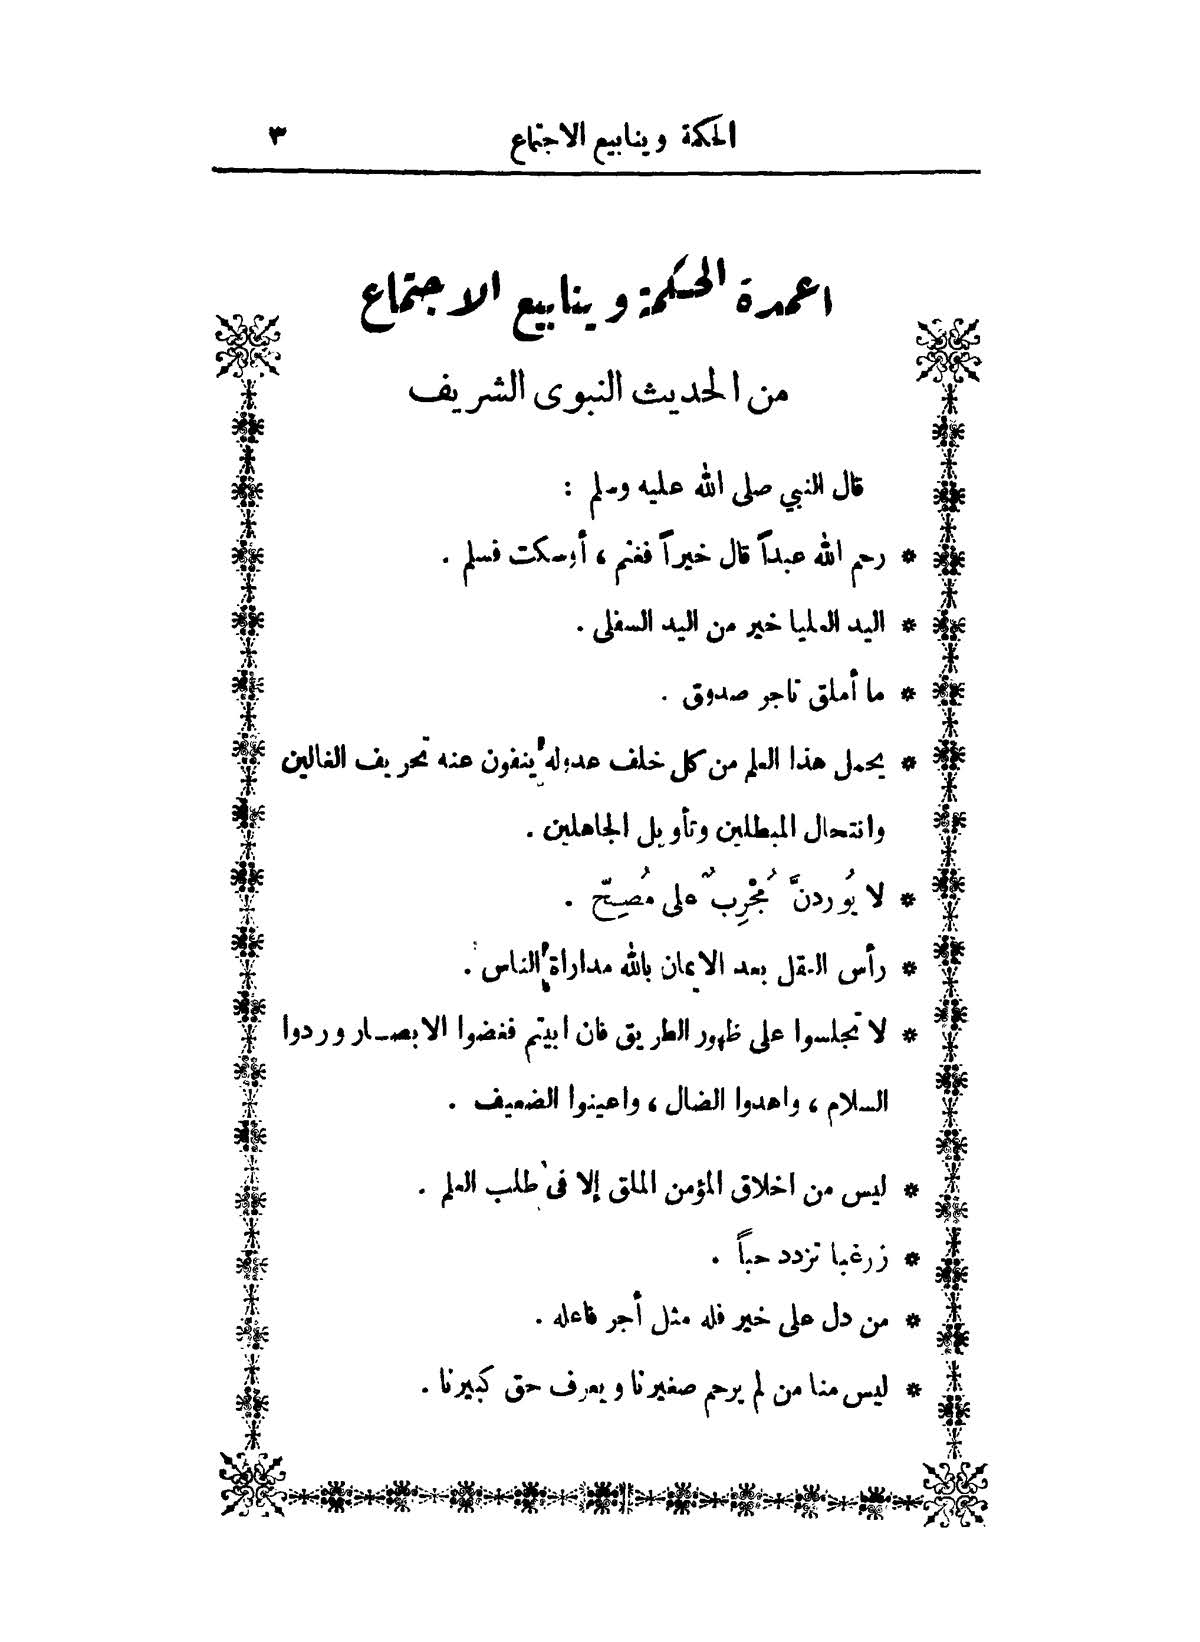 الحكمة وينابيع الاجتماع ٣
اعمدة الحكمة وينابيع الاجتماع
من الحديث النبوى الشريف
قال النبي صلى الله عليه وسلم :
* رحم الله عبداً قال خيراً فغنم ، أوسكت فسلم .
* اليد العليا خير من اليد السفلى .
* ما أملق تاجر صدوق .
* يحمل هذا العلم من كل خلف عدوله ينفون عنه تحريف الغالين
وانتحال المبطلين وتأويل الجاهلين .
* لا يُوردنَّ مُجْرِبٌ على مُصِحّ .
* رأس العقل بعد الايمان بالله مداراة الناس .
* لا تجلسوا على ظهور الطريق فان ابيتم فغضوا الابصـار وردوا
السلام ، واهدوا الضال ، واعينوا الضعيف .
* ليس من اخلاق المؤمن الملق إلا فى طلب العلم .
* زرغبا تزدد حباً .
* من دل على خير فله مثل أجر فاعله .
* ليس منا من لم يرحم صغيرنا ويعرف حق كبيرنا .